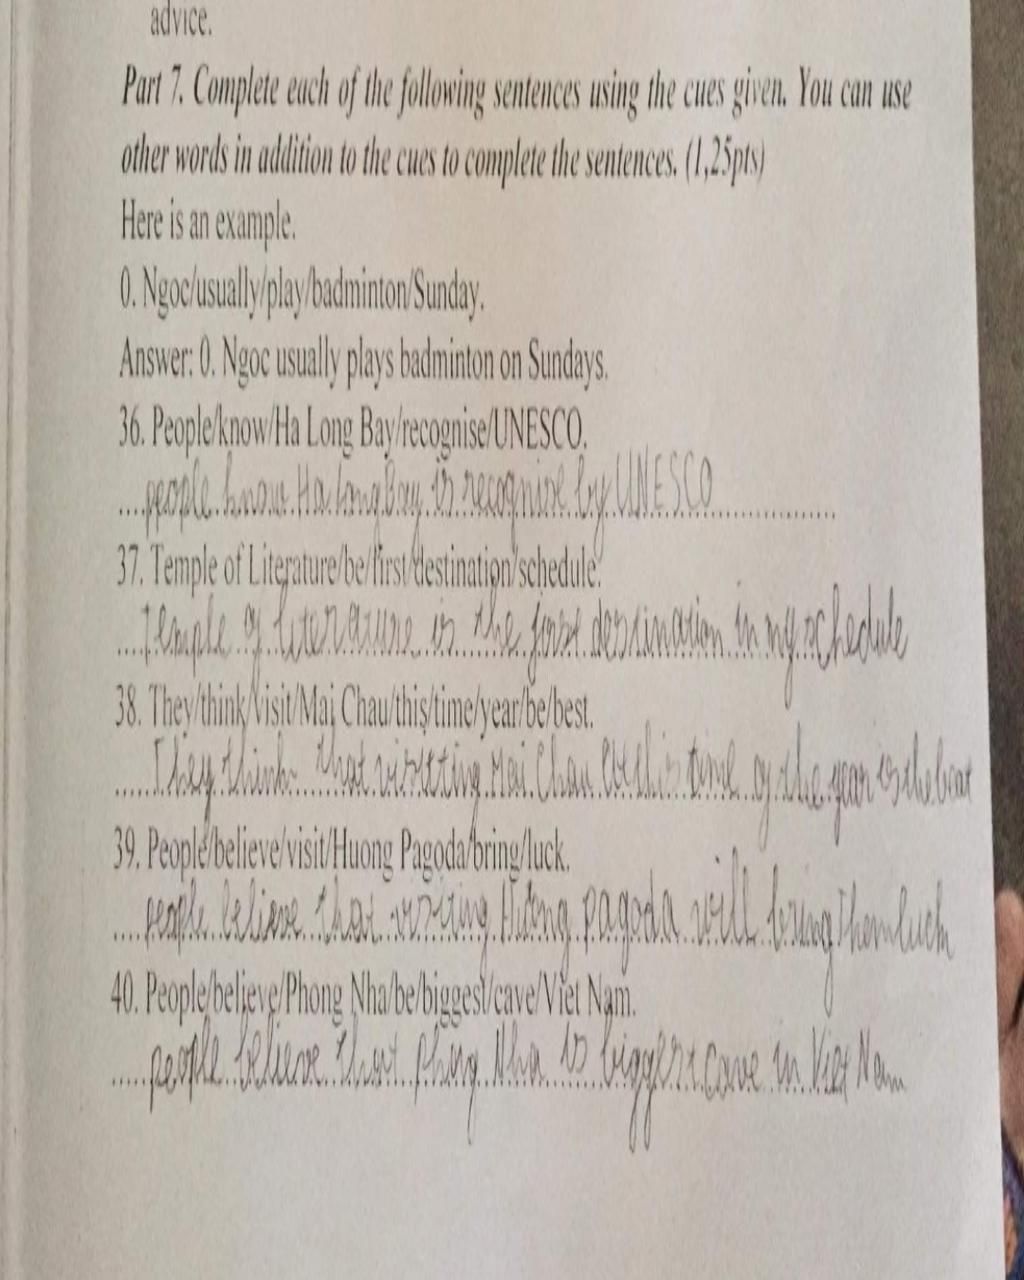 advice.
Part 7. Complete each of the following sentences using the cues given. You can use
other words in addition to the cues to complete the sentences. (1,25pts)
Here is an example.
0. Ngoc/usually/play/badminton/Sunday.
Answer: 0. Ngoc usually plays badminton on Sundays.
36. People/know/Ha Long Bay/recognise/UNESCO.
people know Ha Long Bay is recognise by UNESCO
37. Temple of Literature/be/first/destination/schedule.
Temple of literature is the first destination in my schedule
38. They/think/visit/Mai Chau/this/time/year/be/best.
They think that visitting Mai Chau time of the year is the best
39. People/believe/visit/Huong Pagoda/bring/luck.
people believe that visiting pagoda will bring them luck
40. People/believe/Phong Nha/be/biggest/cave/Viet Nam.
people believe that Nha is biggest cave in Viet Nam